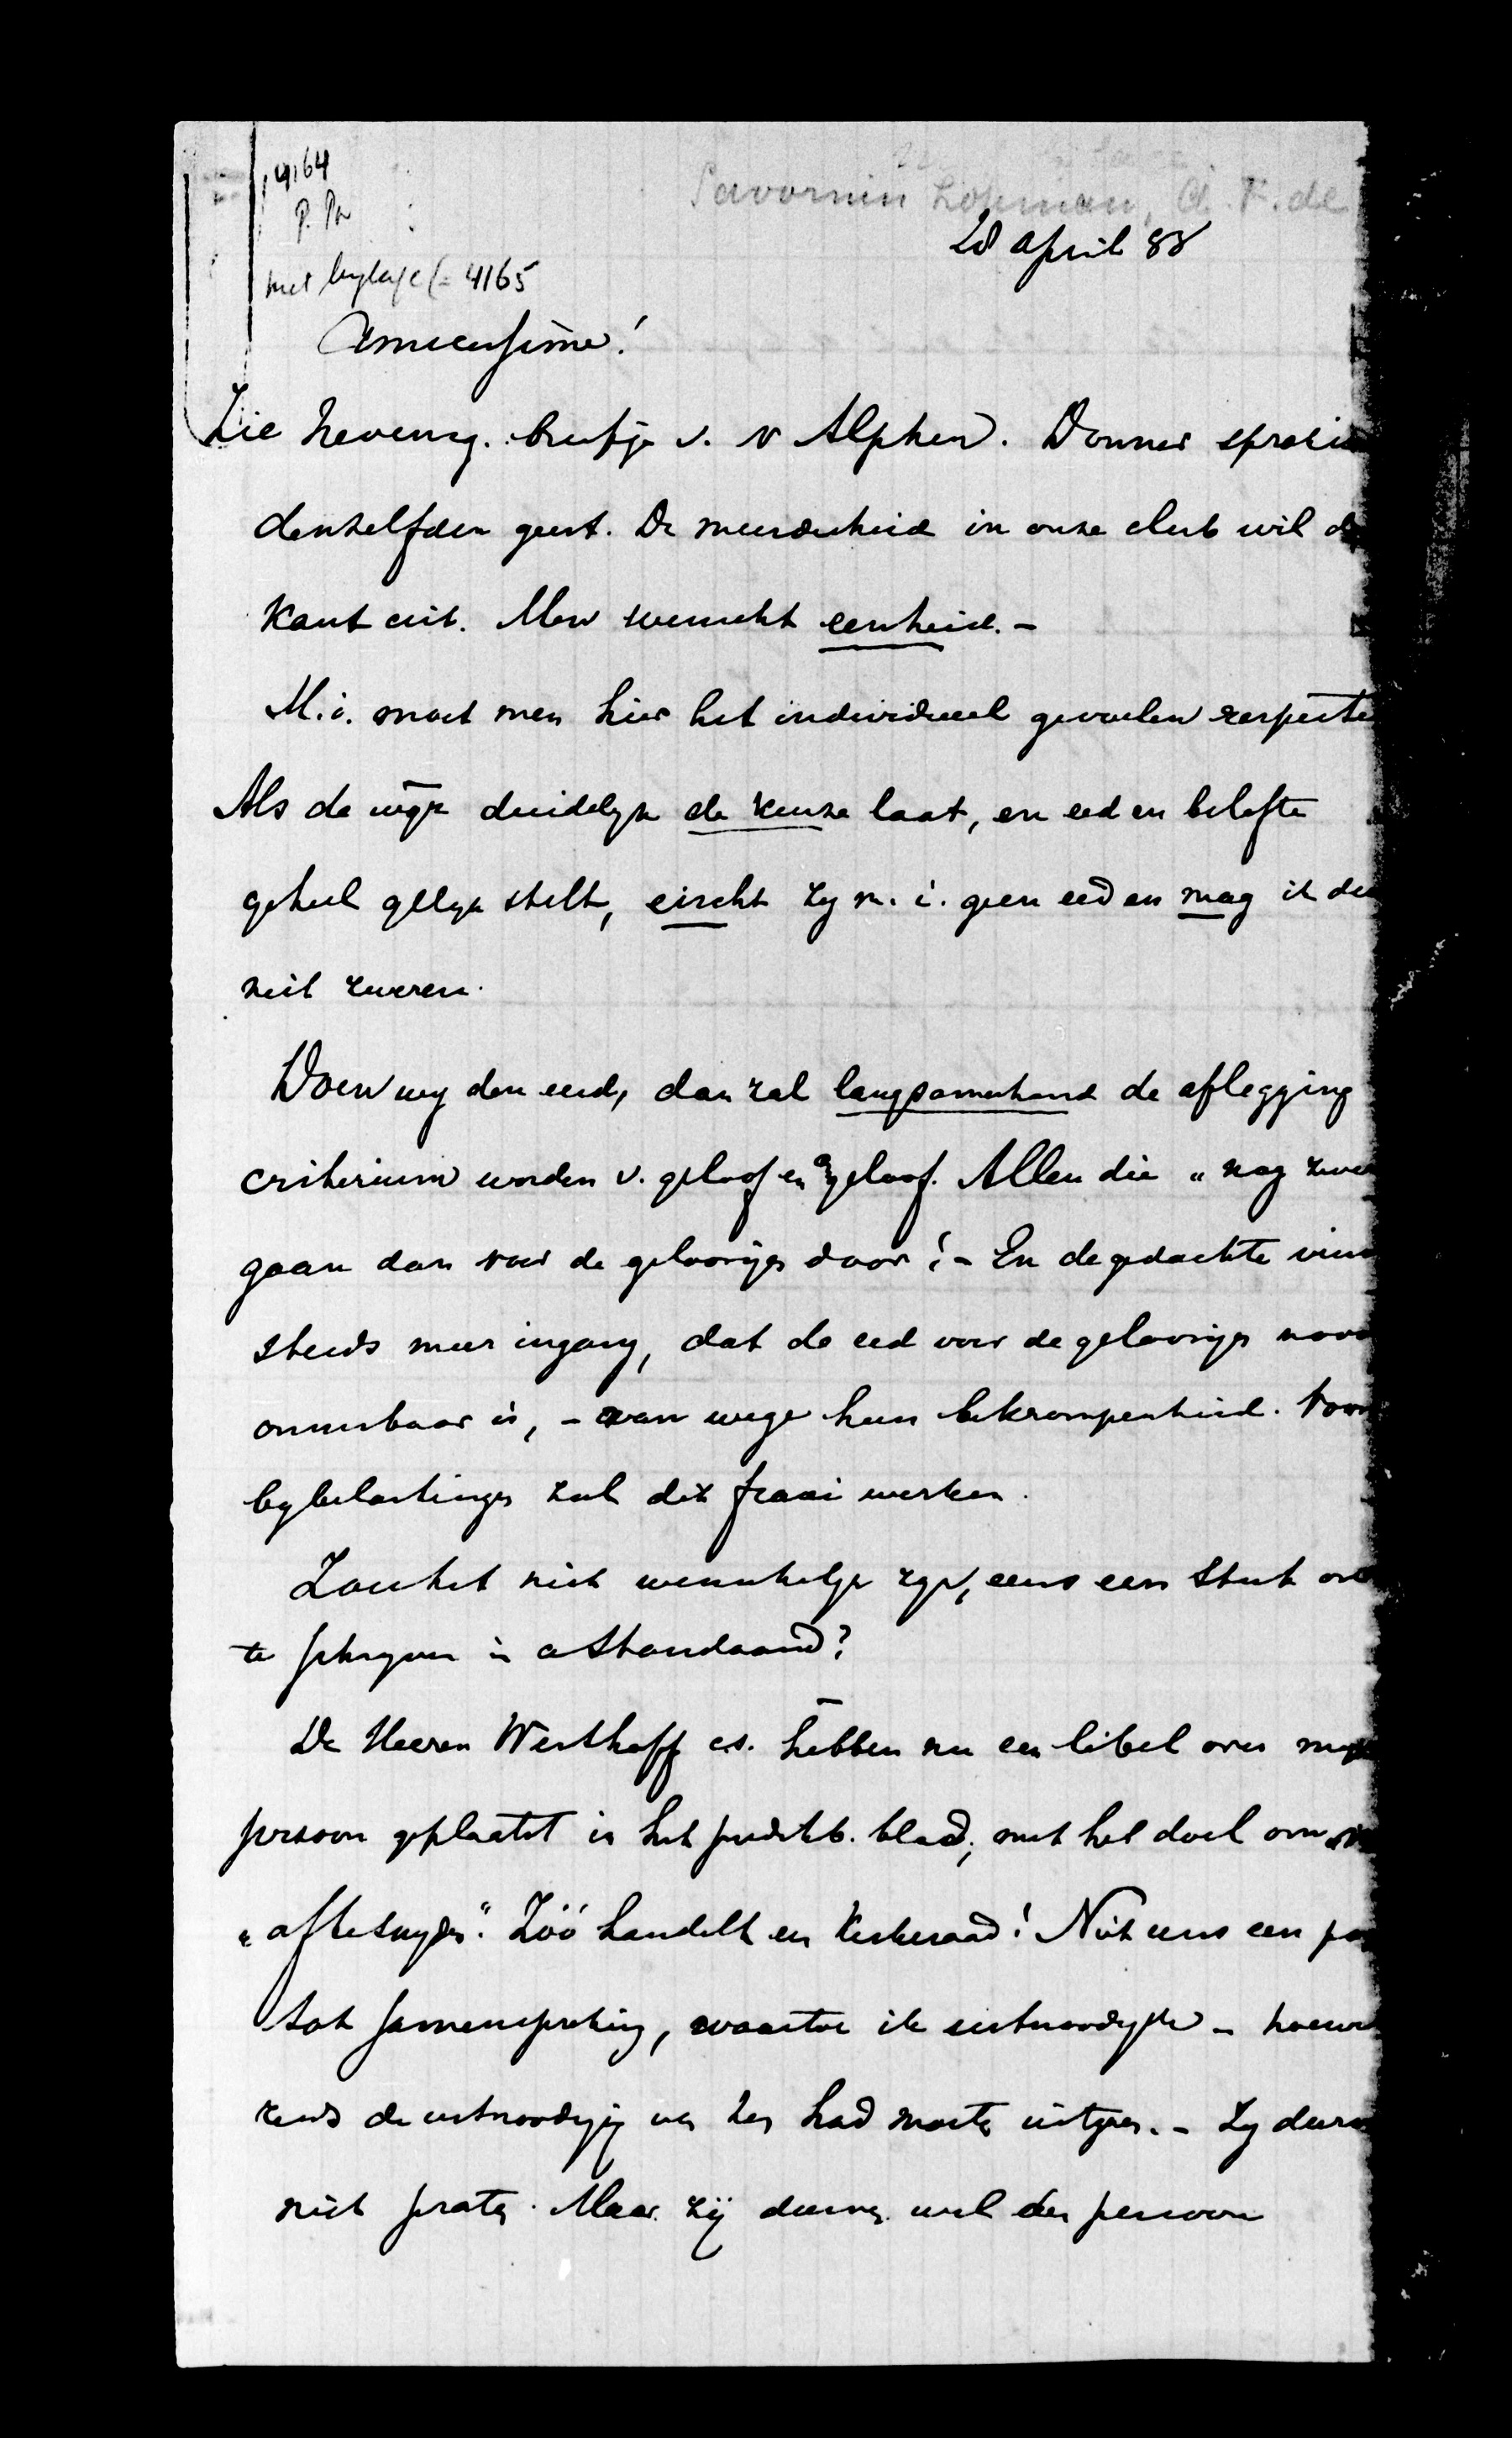 4164
P. Pu
Savornin Lohman, A. F. de
28 April 88
met bylage (= 4165
Amicissime!
Zie nevensg. briefje v. v Alphen. Donner sprak in
denzelfden geest. De meerderheid in onze club wil d
kant uit. Men wenscht eenheid. -
M.i. moet men hier het individueel gevoelen respecte
Als de wet duidelyk de keuze laat, en eed en belofte
geheel gelyk stelt, eischt zy m. i. geen eed en mag ik de
niet zweren.
Doen wy den eed, dan zal langzamerhand de aflegging
criterium worden v. geloof en ongeloof. Allen die „nog zwe
gaan dan voor de geloovigen door! - En de gedachte vin
steeds meer ingang, dat de eed voor de geloovigen nood
onmisbaar is, - van wege hun bekrompenheid. Voor
by belastingen zal dit fraai werken.
Zou het niet wenschelyk zyn, eens een stuk ov
te schryven in de Standaard?
De Heeren Westhoff c.s. hebben nu een libel over my
persoon geplaatst in het predikb. blad, met het doel om
„af te snyden". Zóó handelt een Kerkeraad! Niet eens een po
tot samenspreking, waartoe ik uitnoodigde - hoewe
reeds de uitnoodiging van hen had moeten uitgaan. - Zy durv
niet praten. Maar zij durven wel den persoon